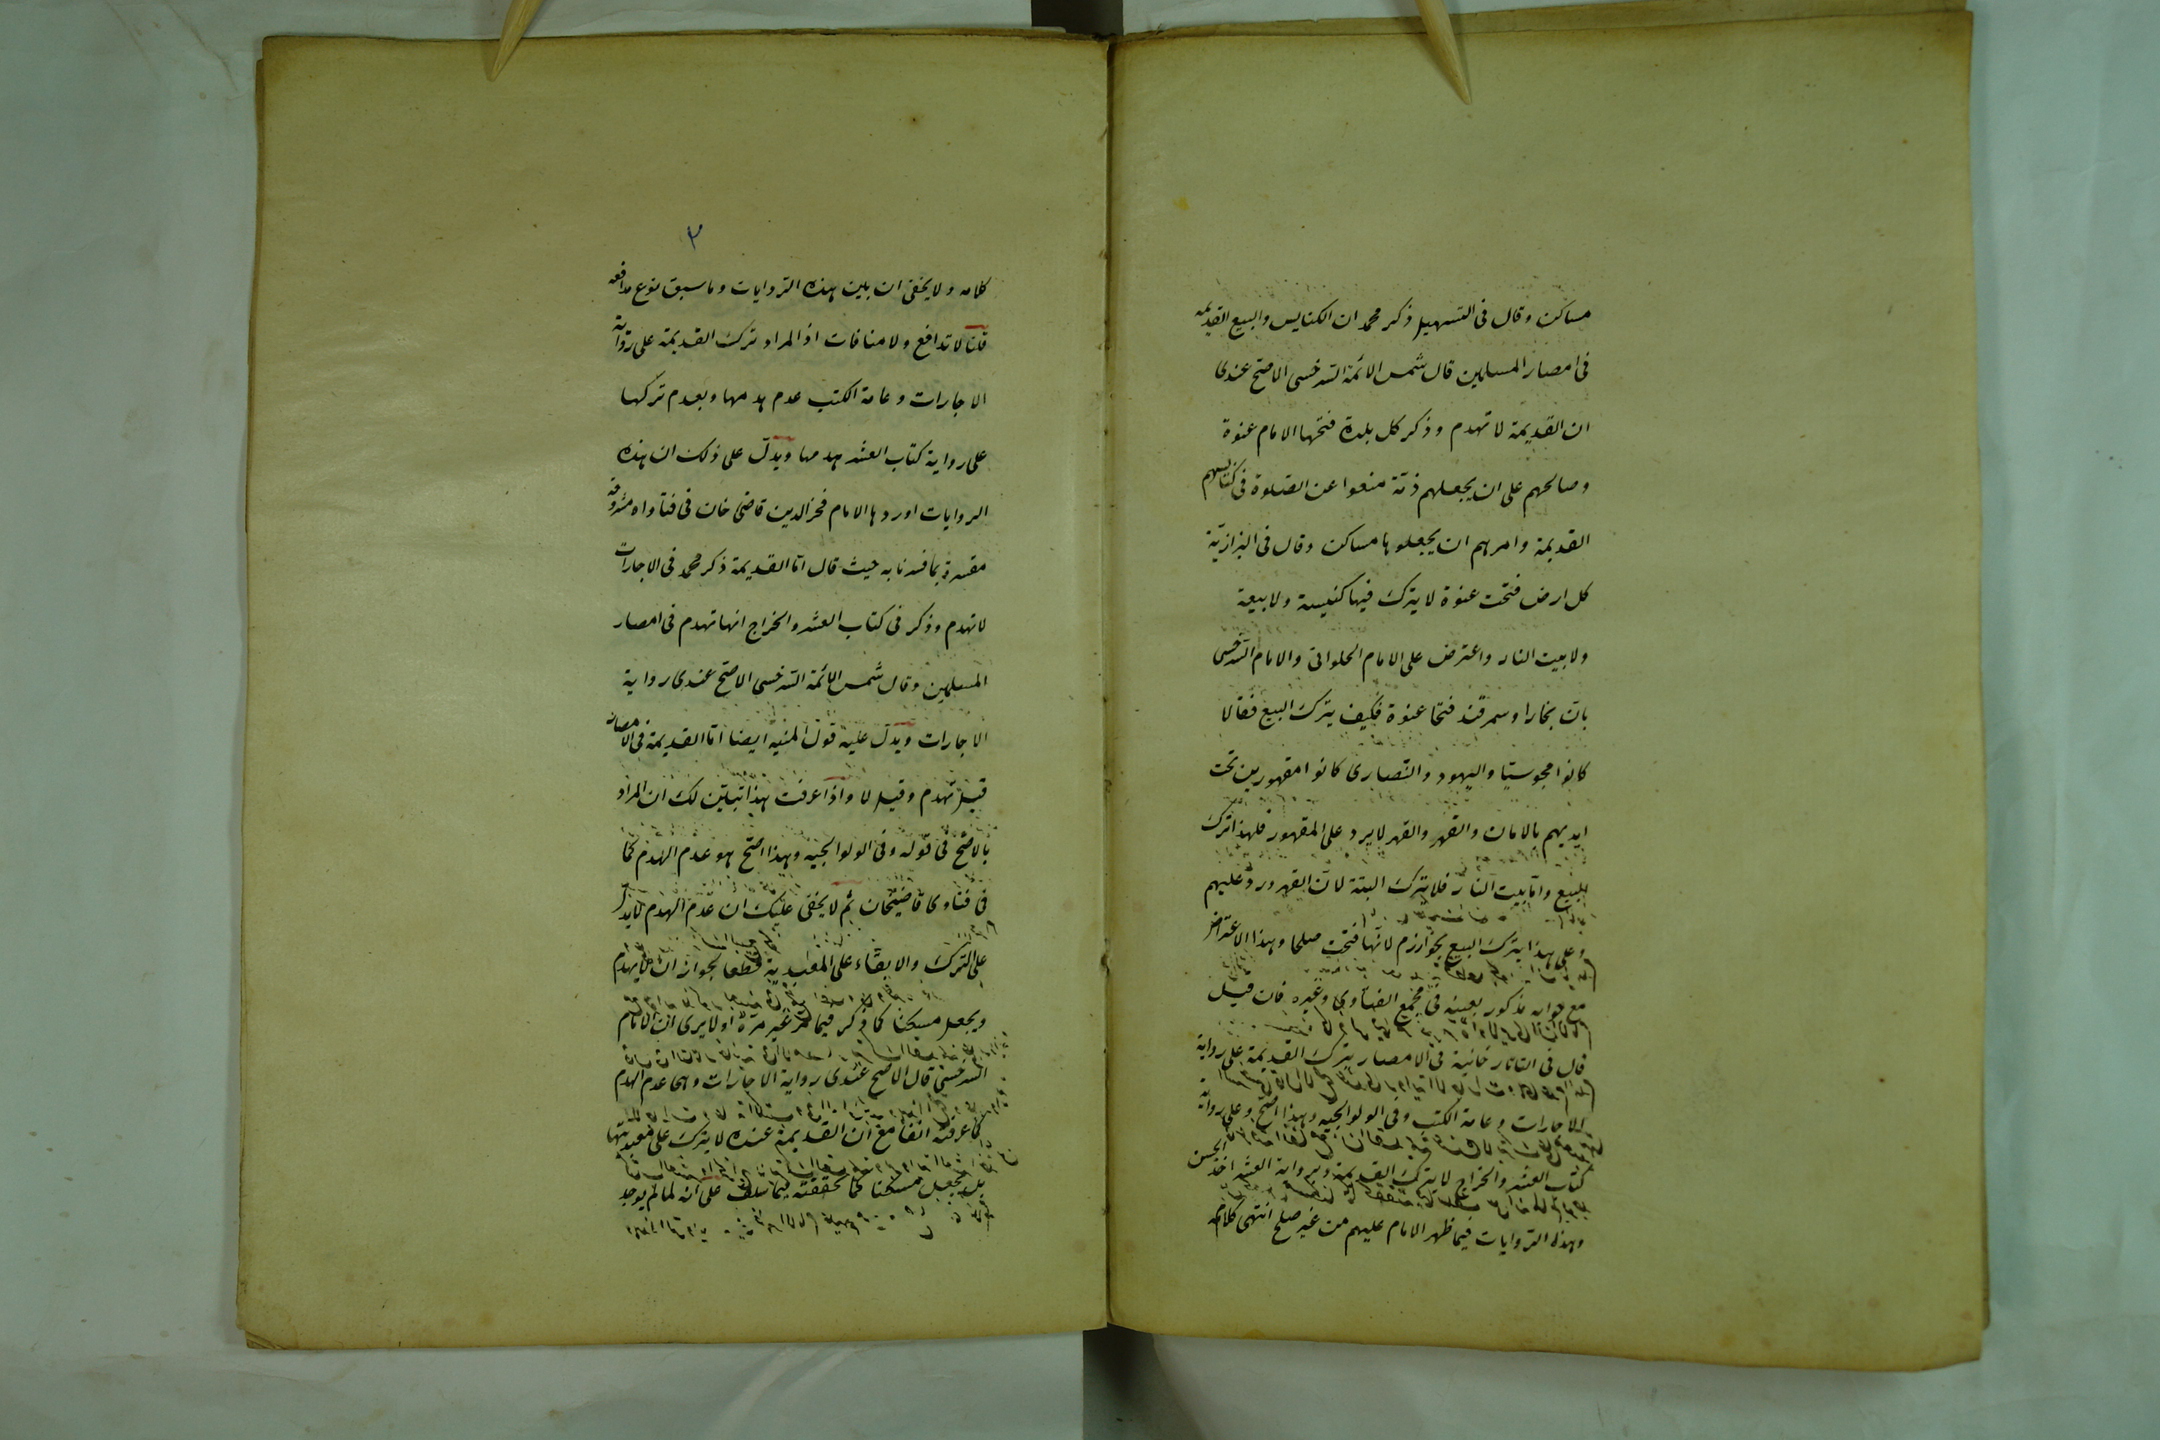 مساكن وقال فى التسهيل ذكر محمد ان الكنايس والبيع القديمه
فى امصار المسلمين قال شمس الائمة السرخسى الاصح عندى
ان القديمة لا تهدم وذكر كل بلدة فتحها الامام عنوة
وصالحهم على ان يجعلهم ذمة منعوا عن الصلوة فى كنايسهم
القديمة وامرهم ان يجعلوها مساكن وقال فى البزازية
كل ارض فتحت عنوة لا يترك فيها كنيسة ولا بيعة
ولا بيت النار واعترض على الامام الحلوانى والامام السرخسى
بان بخارا وسمرقند فتحا عنوة فكيف يترك البيع فقالا
كانوا مجوسيا واليهود والنصارى كانوا مقهورين تحت
ايديهم بالامان والقهر والقهر لا يرد على المقهور فلهذا ترك
البيع واما بيت النار فلا يترك البتة لان القهر ورد عليهم
وعلى هذا يترك البيع بخوارزم لانها فتحت صلحا وهذا الاعتراض
مع جوابه مذكور بعينه فى مجمع الفتاوى وغيره فان قيل
قال فى التاتارخانية فى الامصار يترك القديمة على رواية
الاجارات وعامة الكتب وفى الولوالجيه وهذا اصح وعلى رواية
كتاب العشر والخراج لا يترك القديمة وبرواية العشر اخذ الحسن
وهذه الروايات فيما ظهر الامام عليهم من غير صلح انتهى كلامه
٣
كلامه ولا يخفى ان بين هذه الروايات وما سبق نوع مدافعه
قلنا لا تدافع ولا منافات اذ المراد ترك القديمة على رواية
الاجارات وعامة الكتب عدم هدمها وبعدم تركها
على رواية كتاب العشر هدمها ويدل على ذلك ان هذه
الروايات اوردها الامام فخر الدين قاضى خان فى فتاواه
مفسرة بما فسرنا به حيث قال اما القديمة ذكر محمد فى الاجارات
لا تهدم وذكر فى كتاب العشر والخراج انها تهدم فى امصار
المسلمين وقال شمس الائمة السرخسى الاصح عندى رواية
الاجارات ويدل عليه قول المنيه ايضا اما القديمة فى الامصار
قيل تهدم وقيل لا واذا عرفت هذا تبين لك ان المراد
بالاصح فى قوله وفى الولوالجيه وهذا اصح هو عدم الهدم كما
فى فتاوى قاضيخان ثم لا يخفى عليك ان عدم الهدم لا يدل
على الترك والابقاء على المعبدية قطعا لجواز ان لا يهدم
ويجعل مسكنا كما ذكر فيما مر غير مرة اولا يرى ان الامام
السرخسى قال الاصح عندى رواية الاجارات وهى عدم الهدم
كما عرفته انفا مع ان القديمة عنده لا يترك على معبديتها
بل يجعل مسكنا كما تحققته فيما سلف على انه لما لم يوجد